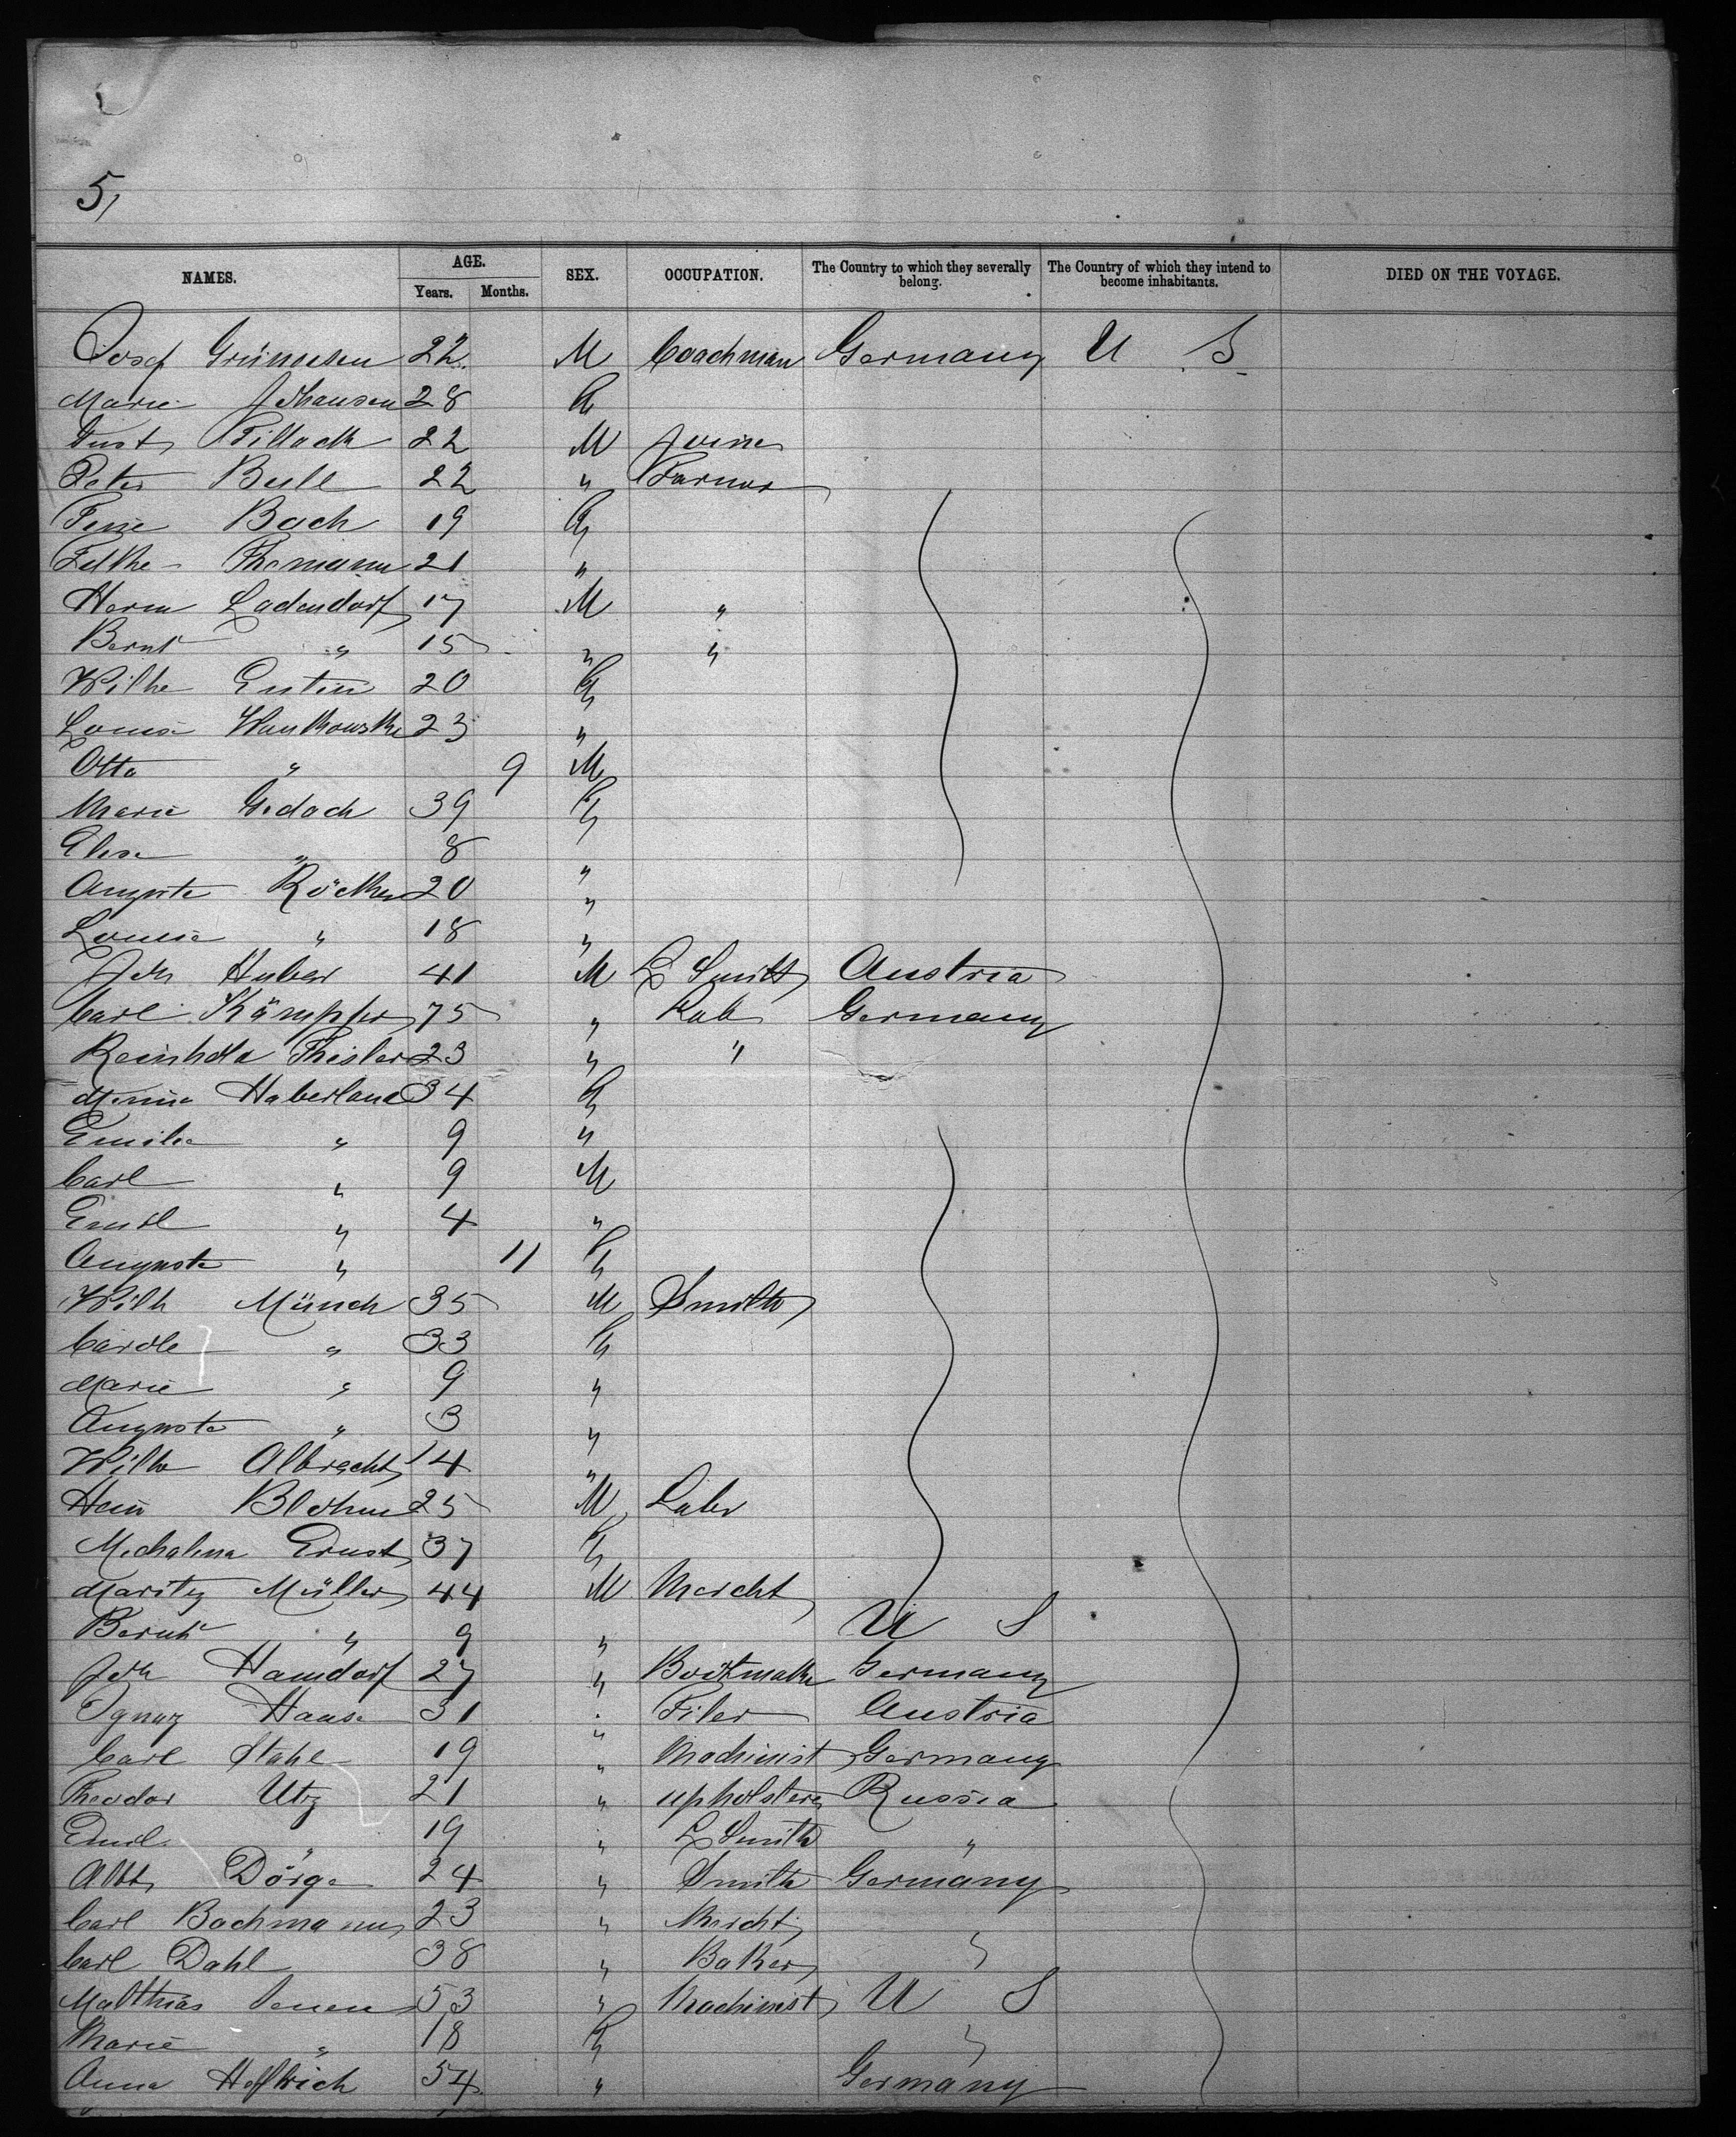 5,
NAMES. AGE. Years. Months. SEX. OCCUPATION. The Country to which they severally belong. The Country of which they intend to become inhabitants. DIED ON THE VOYAGE.
Josef 22 M Coachman Germany U S
Marie Johansen 28
Gust Pillack 22 M Joine
Peter Bull 22 " Farmer
Bach 19
Thomann 21 "
Herm Ladendorf 17 M "
Bernh " 15 " "
Wilhe Entin 20
Louise 23 "
Otto " 9 M
Marie Gedach 39
Elise " 8 "
Auguste 20 "
Louise " 18 "
Joh Huber 41 M L Smith Austria
Carl Kämpfer 75 " Germany
Reinhold Thisler 23 " "
Minna Haberland 34
Emilie " 9 "
Carl " 9 M
Emil " 4 "
Auguste " 11
Wilh Münch 35 M Smith
Carole " 33
Marie " 9 "
Auguste " 3 "
Wilhe Albrecht 14 "
Hein Blohm 25 M Labr
Michalina Ernst 37
Moritz Müller 44 M Mercht
Bernh " 9 " U S
Joh Hamdorf 27 " Germany
Ignaz Hause 31 " Filer Austria
Carl Stahl 19 " Machinist Germany
Theodor Utz 21 " upholsterer Russia
Emil " 19 " L Smith "
Albt Dörge 24 " Smith Germany
Carl Bachmann 23 " Mercht
Carl Dahl 38 " Baker "
Matthias 53 " Machinist U S
Marie " 18 "
Anna Helfrich 54 " Germany